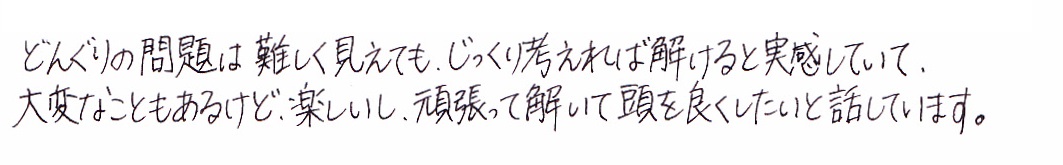 どんぐりの問題は難しく見えても、じっくり考えれば解けると実感していて、
大変なこともあるけど、楽しいし、頑張って解いて頭を良くしたいと話しています。